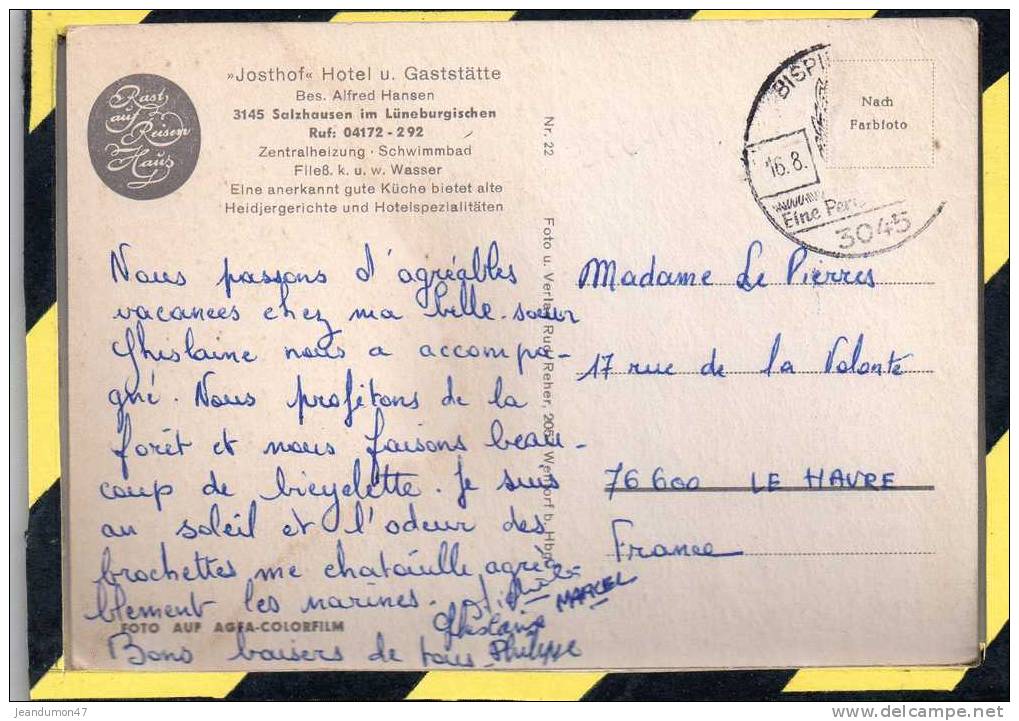 Rast
auf
Reisen
Haus
»Josthof« Hotel u. Gaststätte
Bes. Alfred Hansen
3145 Salzhausen im Lüneburgischen
Ruf: 04172 - 292
Zentralheizung · Schwimmbad
Fließ. k. u. w. Wasser
Eine anerkannt gute Küche bietet alte
Heidjergerichte und Hotelspezialitäten
Nous passons d'agréables
vacances chez ma belle-sœur
Ghislaine nous a accompa-
gné. Nous profitons de la
forêt et nous faisons beau-
coup de bicyclette. Je suis
au soleil et l'odeur des
brochettes me chatouille agréa-
blement les narines.
MARCEL
Ghislaine
Bons baisers de tous Philippe
FOTO AUF AGFA-COLORFILM
Nr. 22
Foto u. Verlag Rudi Reher, 205 Wentorf b. Hbg.
BISPI
16.8.
Eine Per
3045
Nach
Farbfoto
Madame Le Pierres
17 rue de la Volonte
76600 LE HAVRE
France
© jeandumon47
http://www.delcampe.net